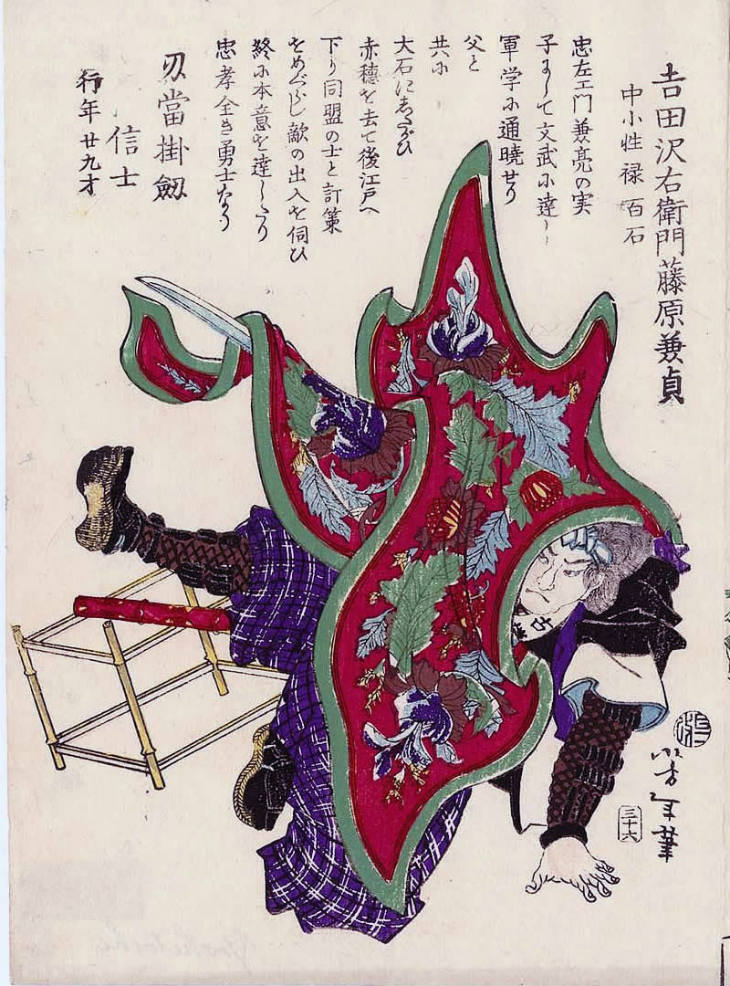 吉田沢右衛門藤原兼貞
中小性禄 百石
忠左エ門兼亮の実
子にして文武に達し
軍学に通暁せり
父と
共に
大石にしたがひ
赤穂を去て後江戸へ
下り同盟の士と計策
をめぐらし敵の出入を伺ひ
終に本意を達したり
忠孝全き勇士なり
刃當掛劔
信士
行年廿九才
芳年筆
三十六